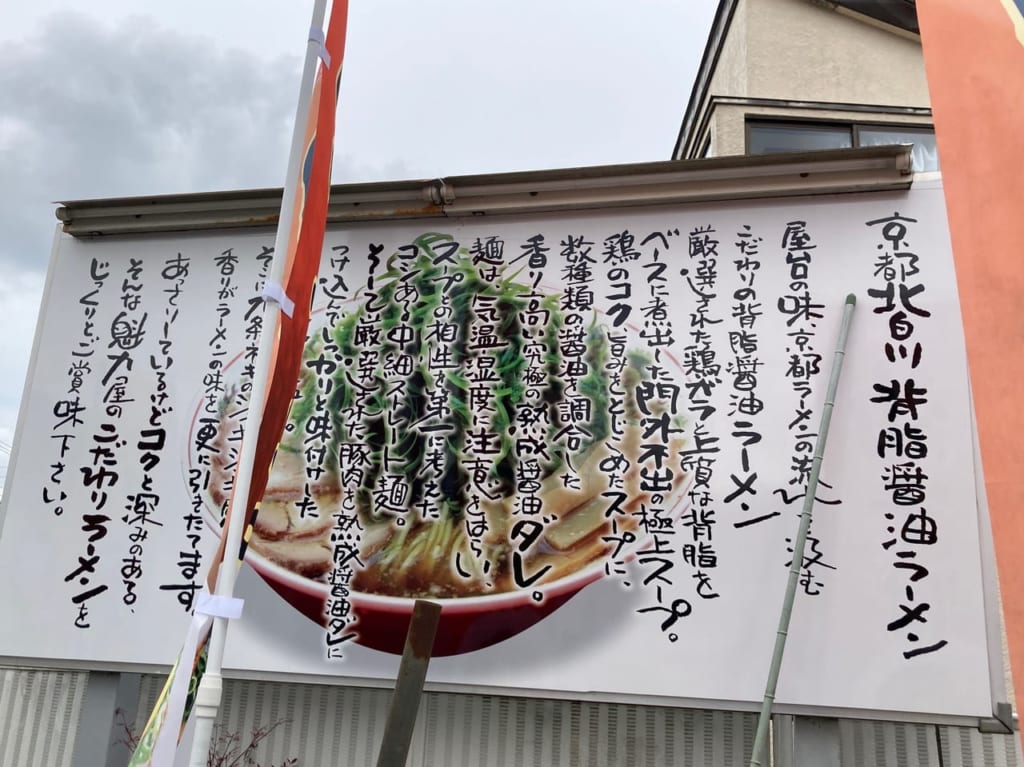 京都北白川 背脂醤油ラーメン
屋台の味、京都ラーメンの流れ汲む
こだわりの背脂醤油ラーメン
厳選された鶏ガラと上質な背脂を
ベースに煮出した門外不出の極上スープ。
鶏のコク、旨みをとじこめたスープに、
数種類の醤油を調合した
香り高い究極の熟成醤油ダレ。
麺は、気温湿度に注意をはらい、
スープとの相性を第一に考えた
コシある中細ストレート麺。
そして厳選された豚肉を熟成醤油ダレに
つけ込んでしっかりと味付けした
。
そこに九条ネギのシャキシャキ
香りがラーメンの味を更に引きたてます。
あっさりしているけどコクと深みのある、
そんな魁力屋のこだわりラーメンを
じっくりとご賞味下さい。